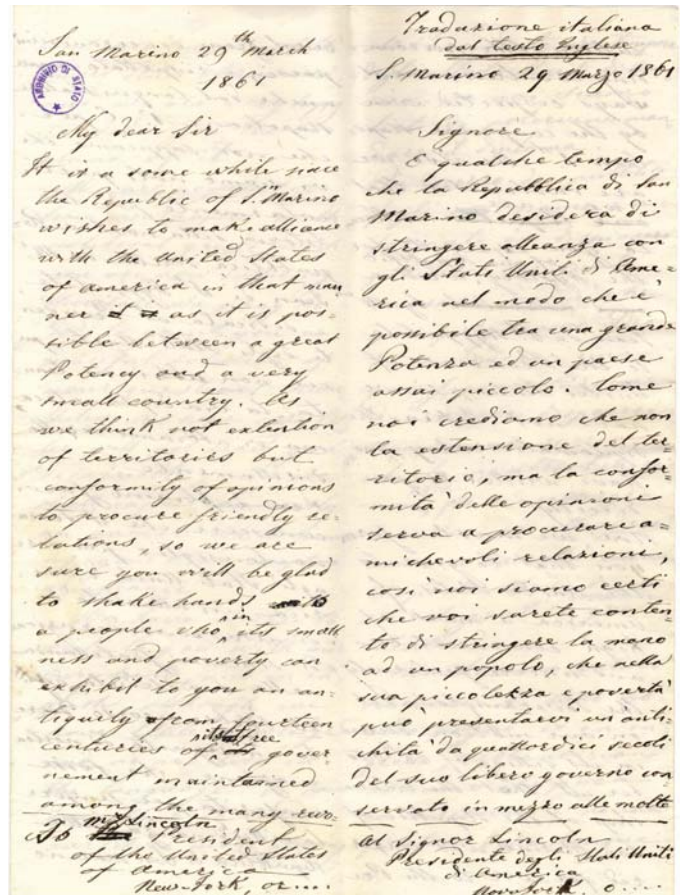 San Marino 29th March
1861
ARCHIVIO DI STATO
My dear Sir
It is a some while since
the Republic of S.n Marino
wishes to make alliance
with the United States
of america in that man
ner it is as it is pos-
sible between a great
Potency and a very
small country. As
we think not extention
of territories but
conformity of opinions
to procure friendly re-
lations, so we are
sure you will be glad
to shake hands with
a people who in its small
ness and poverty can
exhibit to you an an-
tiquity from fourteen
centuries of its free gover
nement maintained
among the many revo-
To Mr Lincoln President
of the United States
of America
New-York, or....
Traduzione italiana
dal testo Inglese
S. Marino 29 Marzo 1861
Signore
È qualche tempo
che la Repubblica di San
Marino desidera di
stringere alleanza con
gli Stati Uniti di Ame-
rica nel modo che è
possibile tra una grande
Potenza ed un paese
assai piccolo. Come
noi crediamo che non
la estensione del ter-
ritorio, ma la confor-
mità delle opinioni
serva a procurare a-
michevoli relazioni,
così noi siamo certi
che voi sarete conten-
to di stringere la mano
ad un popolo, che nella
sua piccolezza e povertà
può presentarvi un'anti-
chità da quattordici secoli
del suo libero governo con
servato in mezzo alle molte
Al Signor Lincoln
Presidente degli Stati Uniti
di America
Nova York. o....